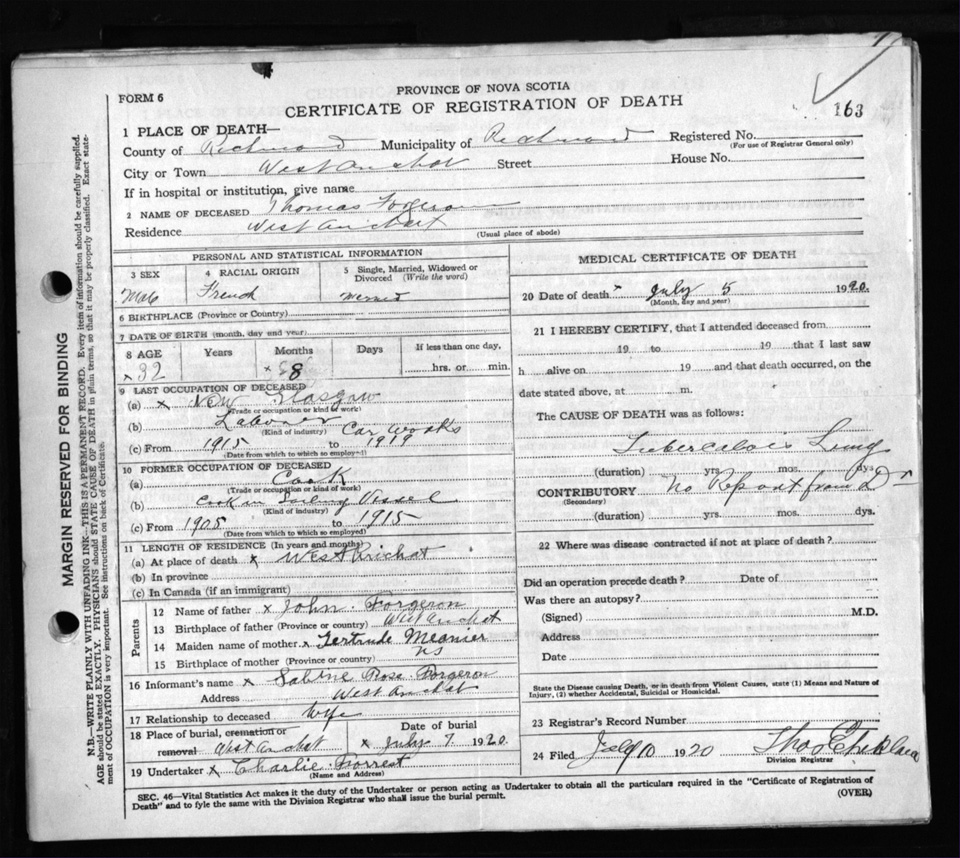 PROVINCE OF NOVA SCOTIA
FORM 6
CERTIFICATE OF REGISTRATION OF DEATH
163
1 PLACE OF DEATH—
County of Richmond Municipality of Richmond Registered No.
(For use of Registrar General only)
City or Town West Arichat Street House No.
If in hospital or institution, give name
2 NAME OF DECEASED Thomas Forgeron
Residence West Arichat
(Usual place of abode)
PERSONAL AND STATISTICAL INFORMATION
3 SEX 4 RACIAL ORIGIN 5 Single, Married, Widowed or Divorced (Write the word)
Male French Married
6 BIRTHPLACE (Province or Country)
7 DATE OF BIRTH (month, day and year)
8 AGE Years Months Days If less than one day,
x 32 x 8 hrs. or min.
9 LAST OCCUPATION OF DECEASED
(a) x New Glasgow
(Trade or occupation or kind of work)
(b) Laborer Car Works
(Kind of industry)
(c) From 1915 to 1919
(Date from which to which so employed)
10 FORMER OCCUPATION OF DECEASED
(a) Cook
(Trade or occupation or kind of work)
(b) Cook in Sailing Vessel
(Kind of industry)
(c) From 1905 to 1915
(Date from which to which so employed)
11 LENGTH OF RESIDENCE (In years and months)
(a) At place of death x West Arichat
(b) In province
(c) In Canada (if an immigrant)
Parents
12 Name of father x John Forgeron
13 Birthplace of father (Province or country) West Arichat
14 Maiden name of mother x Gertrude
15 Birthplace of mother (Province or country) NS
16 Informant's name x Sabine Rose Forgeron
Address West Arichat
17 Relationship to deceased Wife
18 Place of burial, cremation or removal West Arichat Date of burial x July 7 1920
19 Undertaker x Charlie Forrest
(Name and Address)
MEDICAL CERTIFICATE OF DEATH
20 Date of death x July 5 1920.
(Month, day and year)
21 I HEREBY CERTIFY, that I attended deceased from
19 to 19 that I last saw
h alive on 19 and that death occurred, on the
date stated above, at m.
The CAUSE OF DEATH was as follows:
Tuberculois Lung
(duration) yrs. mos. dys.
CONTRIBUTORY No Report from Dr
(Secondary)
(duration) yrs. mos. dys.
22 Where was disease contracted if not at place of death?
Did an operation precede death? Date of
Was there an autopsy?
(Signed) M.D.
Address
Date
State the Disease causing Death, or in death from Violent Causes, state (1) Means and Nature of
Injury, (2) whether Accidental, Suicidal or Homicidal.
23 Registrar's Record Number
24 Filed July 10 1920
Division Registrar
SEC. 46—Vital Statistics Act makes it the duty of the Undertaker or person acting as Undertaker to obtain all the particulars required in the "Certificate of Registration of
Death" and to fyle the same with the Division Registrar who shall issue the burial permit.
(OVER)
MARGIN RESERVED FOR BINDING
N.B.—WRITE PLAINLY WITH UNFADING INK—THIS IS A PERMANENT RECORD. Every item of information should be carefully supplied.
AGE should be stated EXACTLY. PHYSICIANS should STATE CAUSE OF DEATH in plain terms, so that it may be properly classified. Exact state-
ment of OCCUPATION is very important. See instructions on back of Certificate.